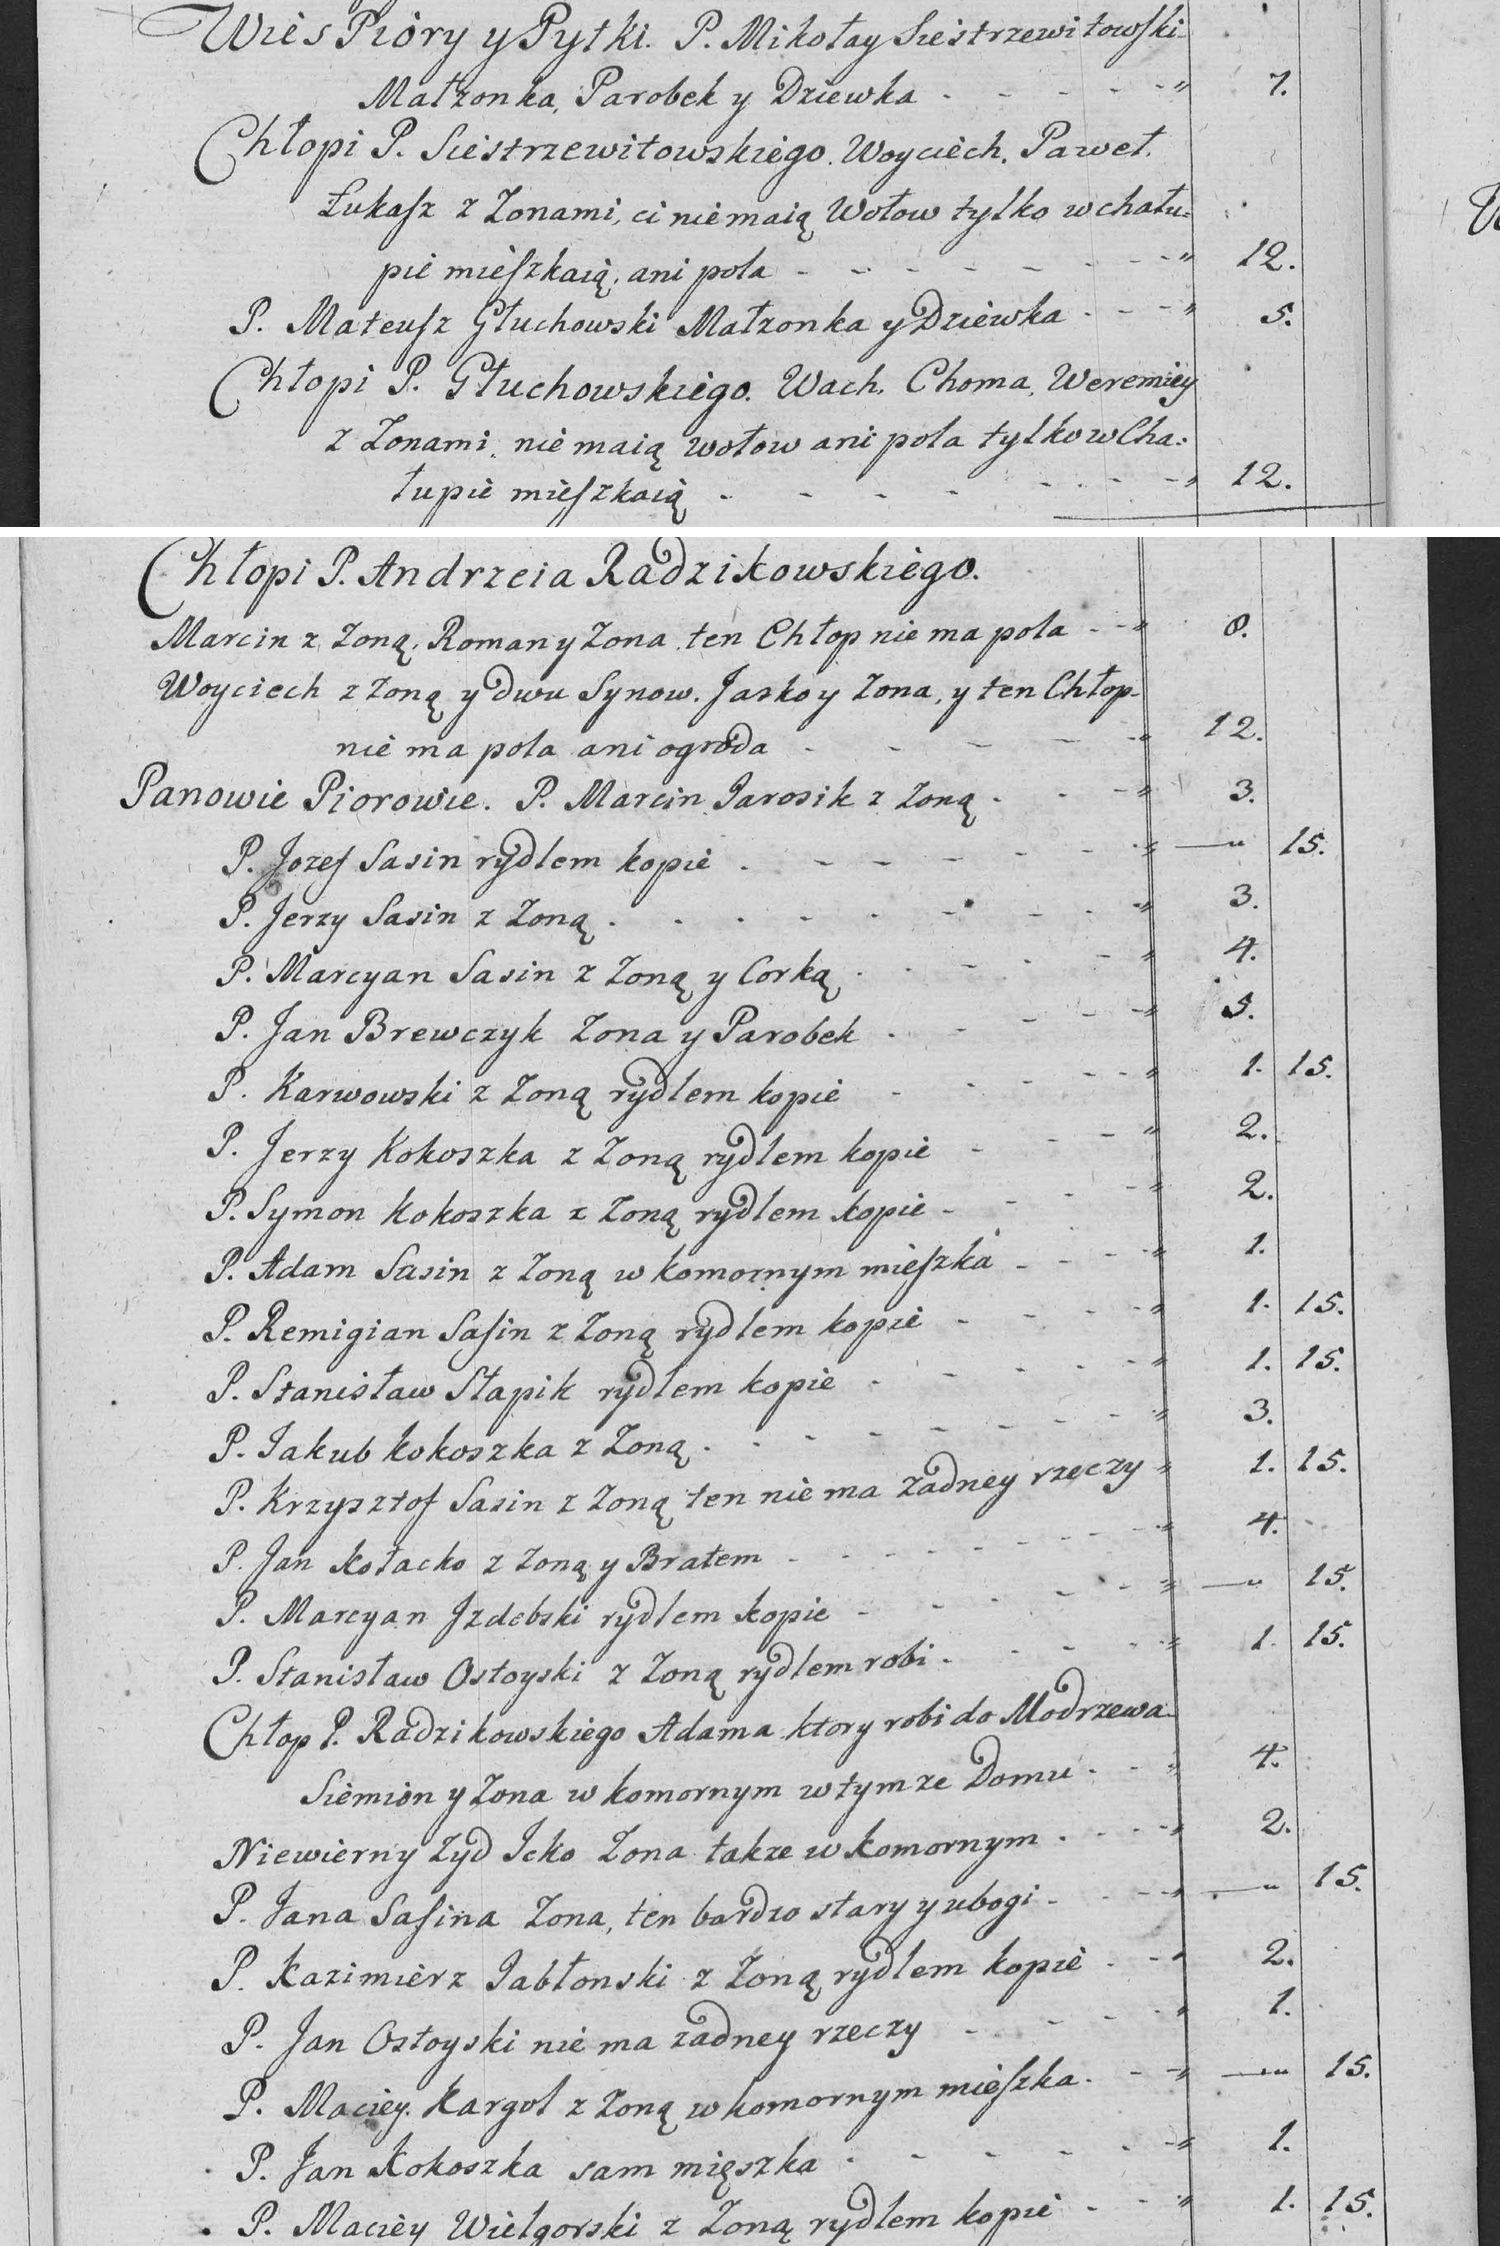 Wies Pióry y Pytki. P. Mikołay Siestrzewitowski
Małzonka, Parobek y Dziewka - - - - - " 7.
Chłopi P. Siestrzewitowskiego. Woyciech. Paweł.
Łukasz z Zonami, ci niemaią Wołow tylko w chału=
pie mieszkaią, ani pola - - - - - - - " 12.
P. Mateusz Głuchowski Małzonka y Dziewka - - - " 5.
Chłopi P. Głuchowskiego. Wach. Choma, Weremiey
z Zonami, nie maią wołow ani pola tylko w Cha:
łupie mieszkaią - - - - - - - " 12.
Chłopi P. Andrzeia Radzikowskiego.
Marcin z Zoną, Roman y Zona ten Chłop nie ma pola - - " 8.
Woyciech z Zoną y dwu Synow. Jasko y Zona, y ten Chłop
nie ma pola ani ogroda - - - - - " 12.
Panowie Piorowie. P. Marcin Jarosik z Zoną - - - " 3.
P. Jozef Sasin rydlem kopie - - - - - - " —" 15.
P. Jerzy Sasin z Zoną - - - - - - - - " 3.
P. Marcyan Sasin z Zoną y Corką - - - - - " 4.
P. Jan Brewczyk Zona y Parobek - - - - " 5.
P. Karwowski z Zoną rydlem kopie - - - - - " 1. 15.
P. Jerzy Kokoszka z Zoną rydlem kopie - - - " 2.
P. Symon Kokoszka z Zoną rydlem kopie - - - - " 2.
P. Adam Sasin z Zoną w komornym mieszka - - - - " 1.
P. Remigian Sasin z Zoną rydlem kopie - - - - " 1. 15.
P. Stanisław Stapik rydlem kopie - - - - - " 1. 15.
P. Jakub Kokoszka z Zoną - - - - - - - - " 3.
P. Krzysztof Sasin z Zoną ten nie ma zadney rzeczy " 1. 15.
P. Jan Kołacko z Zoną y Bratem - - - - - - - " 4.
P. Marcyan Jzdebski rydlem kopie - - - - - - " —" 15.
P. Stanisław Ostoyski z Zoną rydlem robi - - - - - " 1. 15.
Chłop P. Radzikowskiego Adama ktory robi do Modrzewa
Siemion y Zona w komornym w tym ze Domu - - " 4.
Niewierny Zyd Jcko Zona takze w komornym - - - - " 2.
P. Jana Sasina Zona, ten bardzo stary y ubogi - - - - " —" 15.
P. Kazimierz Jabłonski z Zoną rydlem kopie - - - " 2.
P. Jan Ostoyski nie ma zadney rzeczy - - - - - " 1.
P. Maciey Kargol z Zoną w komornym mieszka - - " —" 15.
P. Jan Kokoszka sam mięszka - - - - - - " 1.
P. Maciey Wielgorski z Zoną rydlem kopie - - " 1. 15.